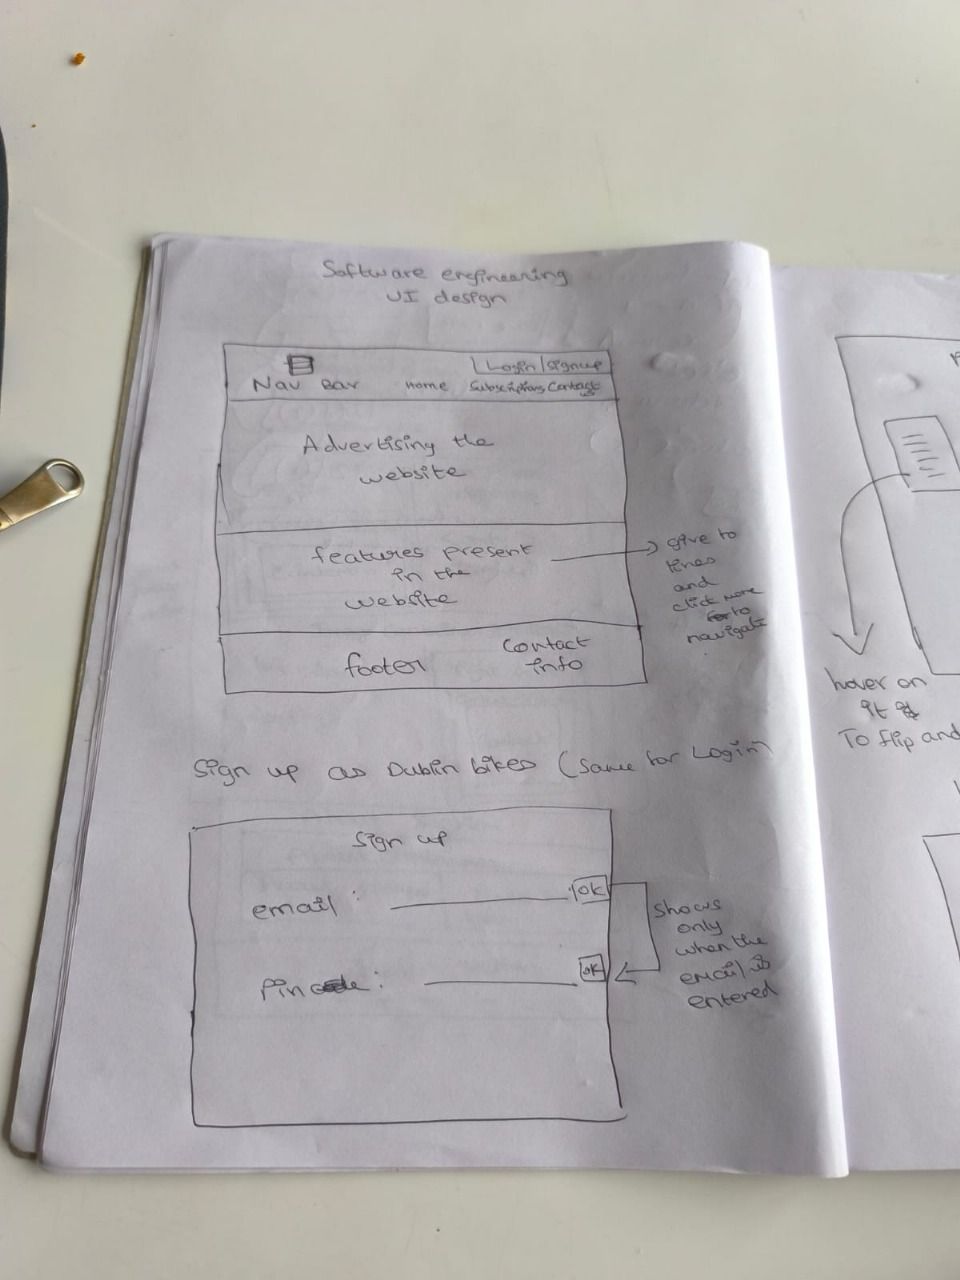 Software engineering
UI design
Login/signup
Nav Bar Home Subscriptions Contact us
Advertising the
website
features present
in the
website
give to
lines
and
click more
to
navigate
footer
Contact
info
Sign up as Dublin bikes (Same for Login)
Sign up
email :
OK
Pin :
OK
Shows
only
when the
email is
entered
hover on
it
To flip and